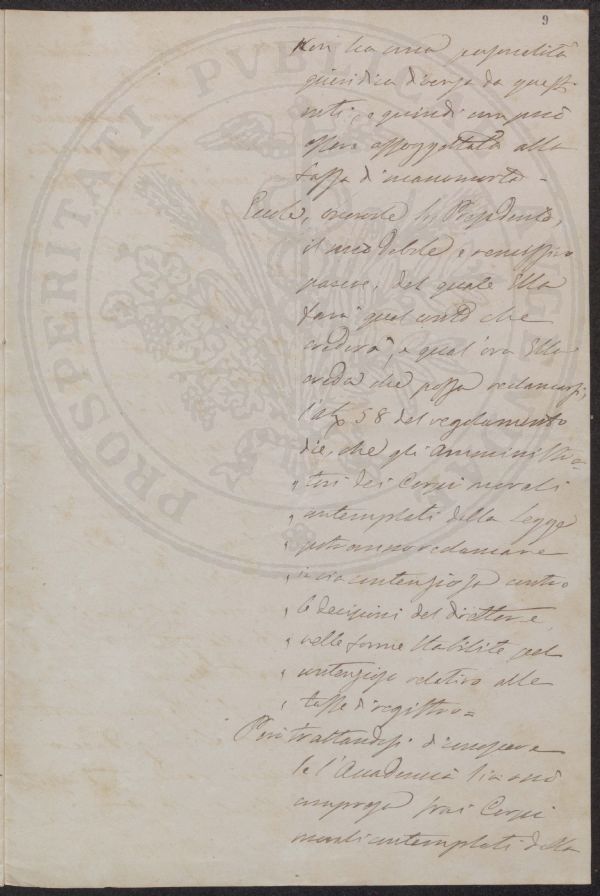 9
Non ha una personalità
giuridica diversa da questi
enti, e quindi non può
essere assoggettata alla
tassa di manomorta -
Eccole, onorevole Sig. Presidente,
il mio debole e remissivo
parere, del quale Ella
farà quel conto che
crederà, e qual'ora Ella
creda che possa reclamarsi,
l'art. 58 del regolamento
dice, che gli Amministra=
„ tori dei Corpi morali
„ contemplati della Legge
„ potranno reclamare
„ in via contenziosa contro
„ le decisioni del direttore,
„ nelle forme stabilite pel
„ contenzioso relativo alle
„ tasse di registro =
Però trattandosi di
se l'Accademia sia o nò
compresa frai Corpi
morali contemplati della
PROSPERITATI PVBLICAE AVGENDAE